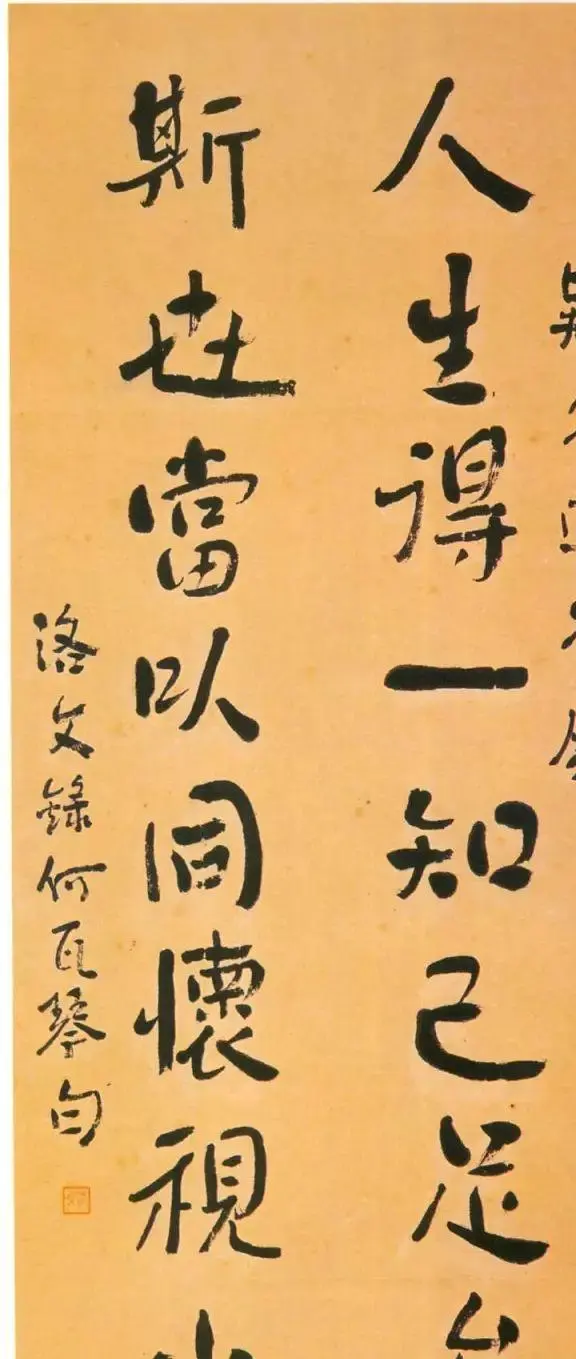 人生得一知己足
斯世當以同懷視
洛文錄何瓦琴句